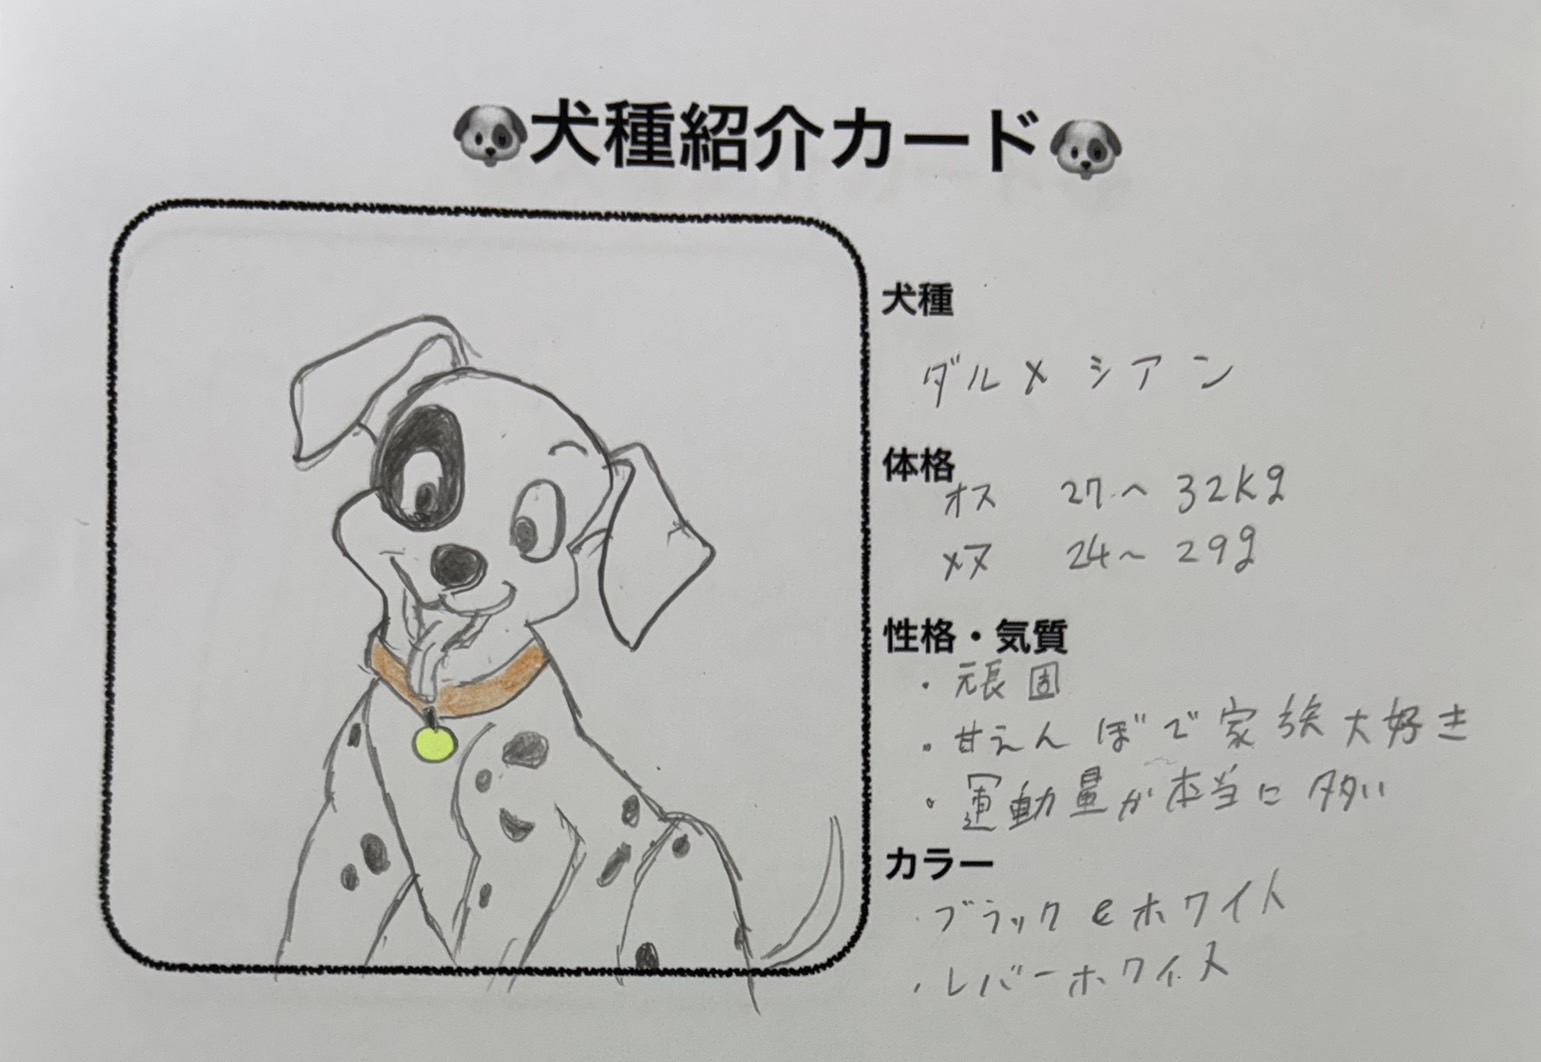 犬種紹介カード
犬種
ダルメシアン
体格
オス 27〜32kg
メス 24〜29g
性格・気質
・頑固
・甘えんぼで家族大好き
・運動量が本当に多い
カラー
・ブラック&ホワイト
・レバーホワイス